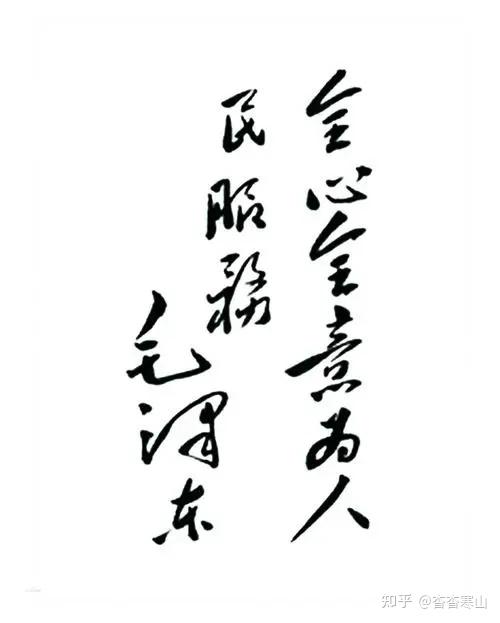 全心全意为人
民服務
毛泽东
知乎 @杳杳寒山